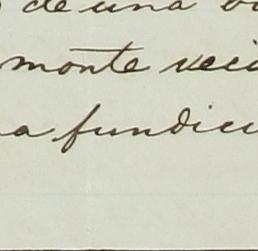 de una
monte veci
a fundici